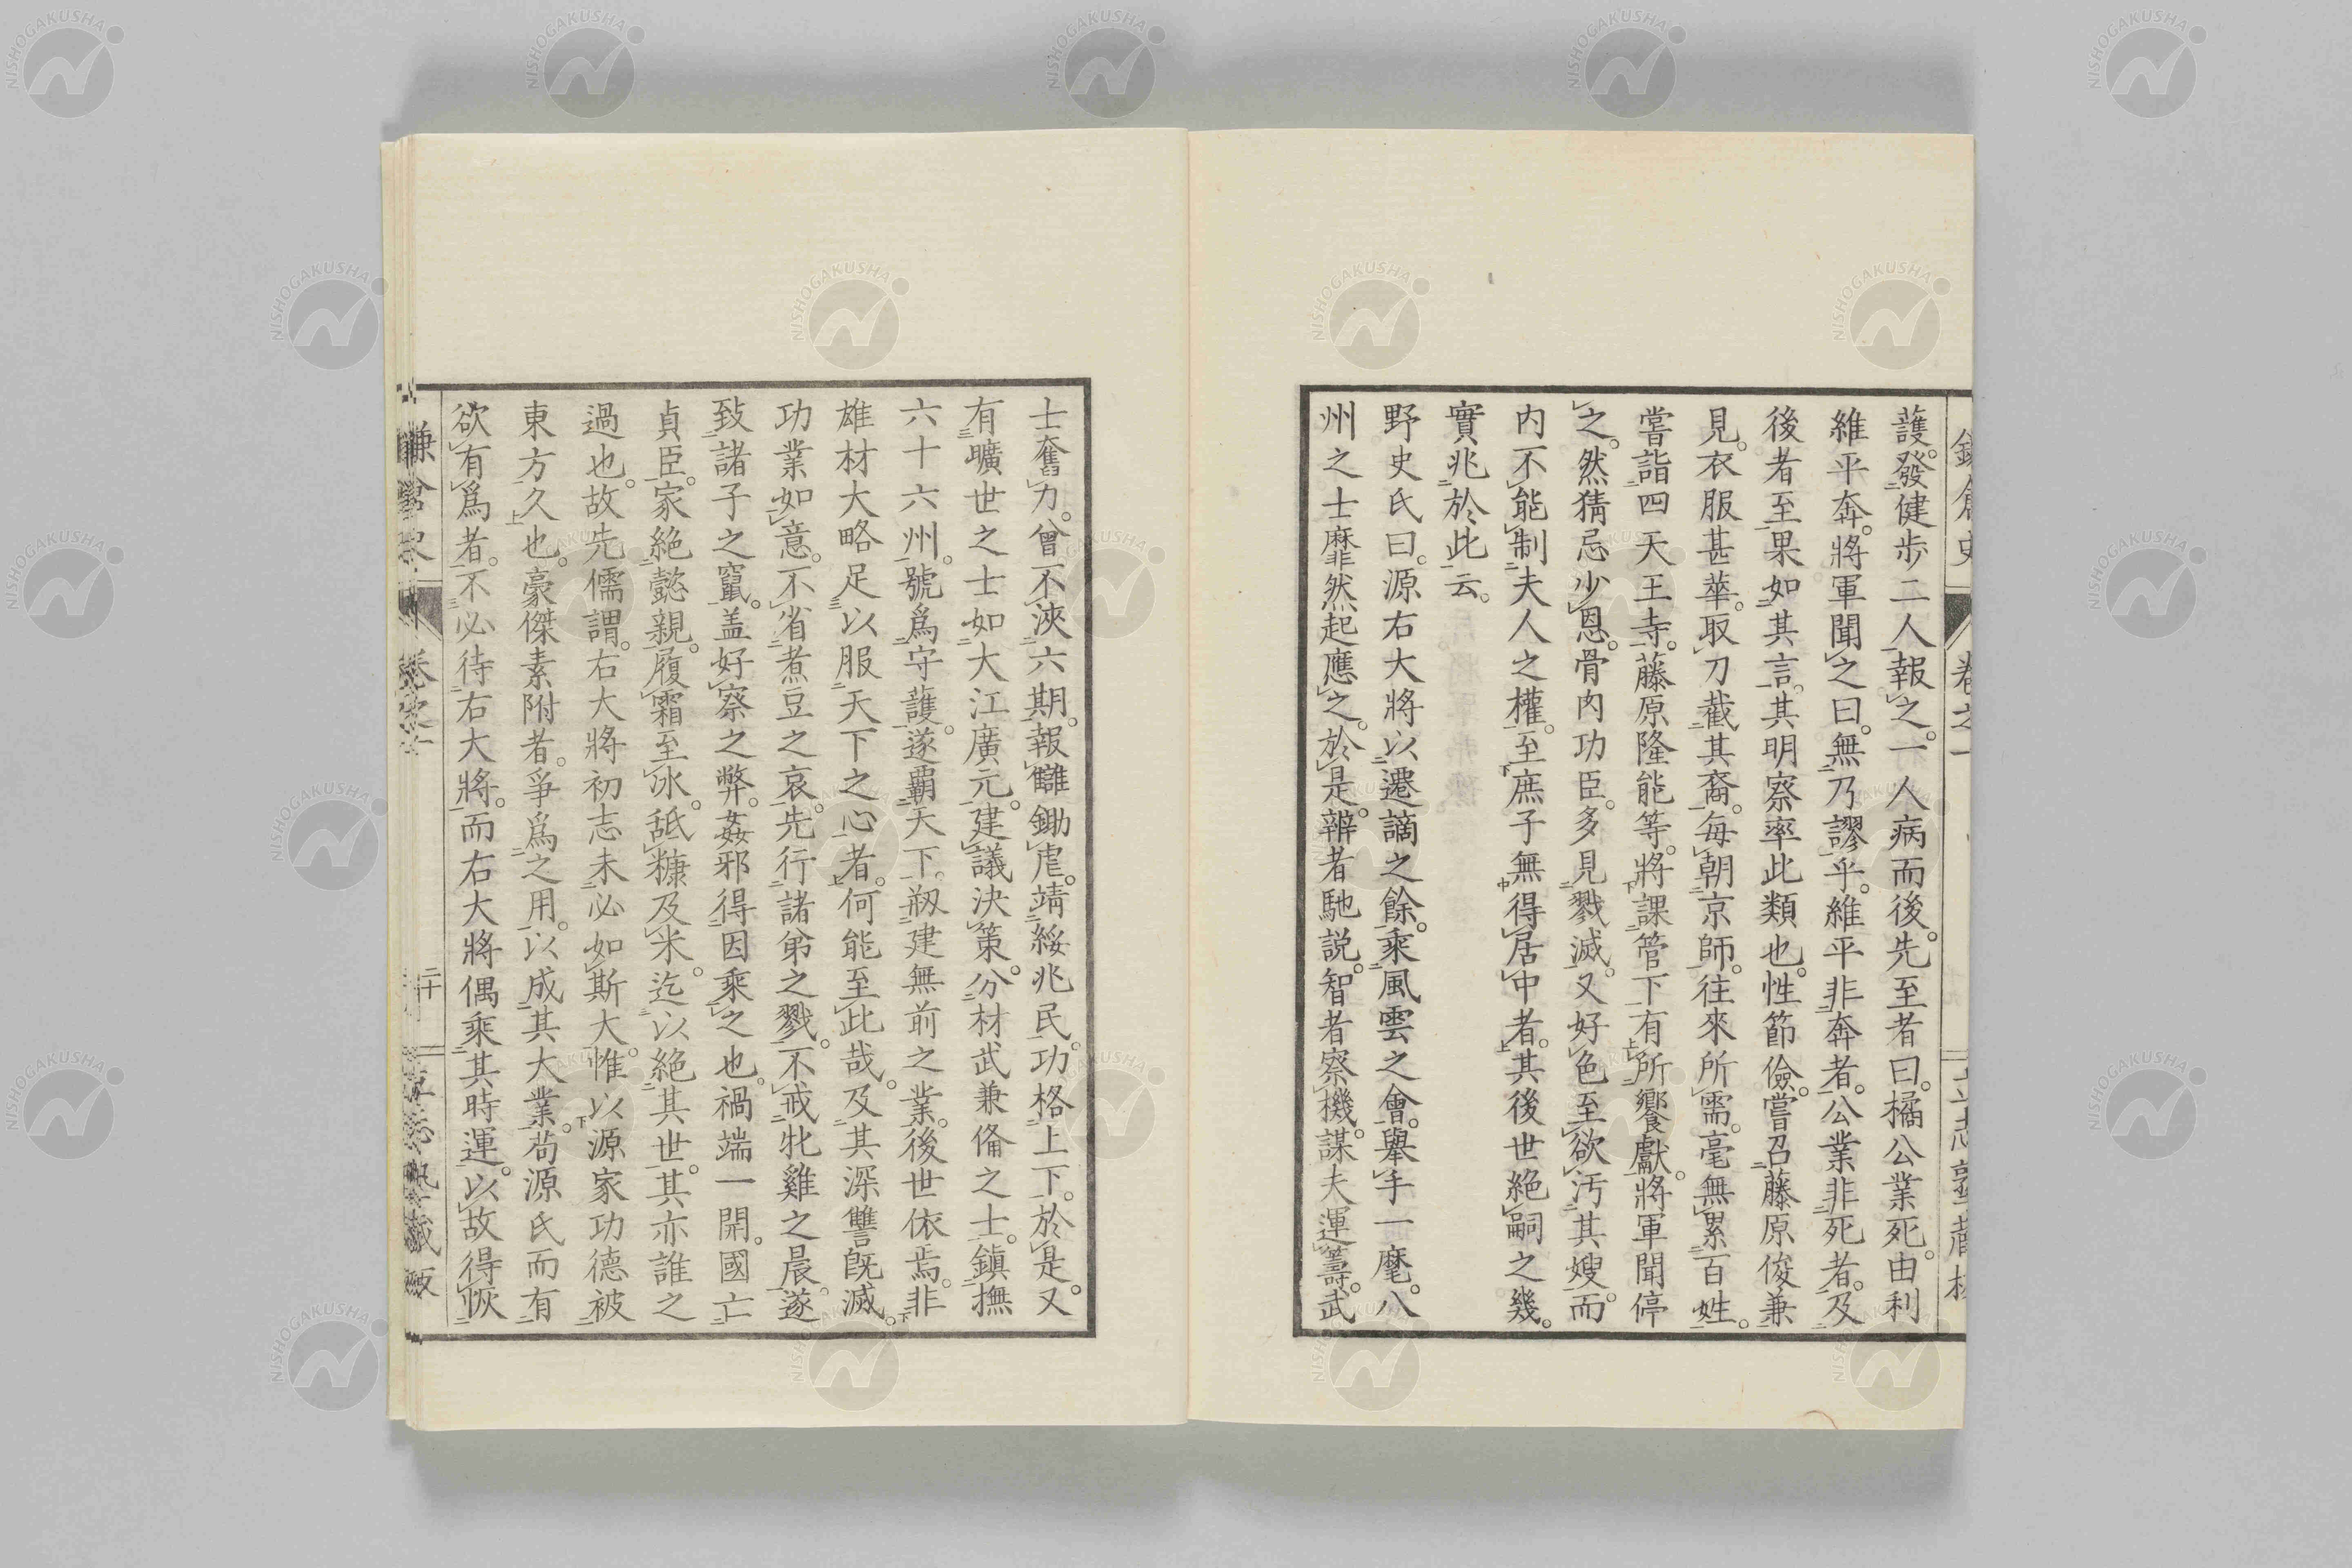 護。發健歩二人報之。一人病而後。先至者曰。橘公業死。由利
維平奔。將軍聞之曰。無乃謬乎。維平非奔者。公業非死者。及
後者至果如其言。其明察率此類也。性節儉。嘗召藤原俊兼
見。衣服甚華。取刀截其裔。毎朝京師。往來所需。毫無累百姓。
嘗詣四天王寺。藤原隆能等。將課管下有所饗獻。將軍聞停
之。然猜忌少恩。骨肉功臣。多見戮滅。又好色至欲汚其嫂。而
内不能制夫人之權。至庶子無得居中者。其後世絶嗣之幾。
實兆於此云。
野史氏曰。源右大將以遷謫之餘。乘風雲之會。舉手一麾。八
州之士靡然起應之。於是。辨者馳説。智者察機。謀夫運籌。武
士奮力。曾不浹六期。報讎鋤虐。靖綏兆民。功格上下。於是。又
有曠世之士如大江廣元。建議決策。分材武兼備之士。鎮撫
六十六州。號爲守護。遂霸天下。剏建無前之業。後世依焉。非
雄材大略足以服天下之心者。何能至此哉。及其深讐既滅。
功業如意。不省煮豆之哀。先行諸弟之戮。不戒牝雞之晨。遂
致諸子之竄。盖好察之弊。姦邪得因乘之也。禍端一開。國亡
貞臣。家絶懿親。履霜至冰。舐糠及米。迄以絶其世。其亦誰之
過也。故先儒謂。右大將初志未必如斯大。惟以源家功德被
東方久也。豪傑素附者。爭爲之用。以成其大業。苟源氏而有
欲有爲者。不必待右大將。而右大將偶乘其時運。以故得恢
卷之一
二十
NISHOGAKUSHA